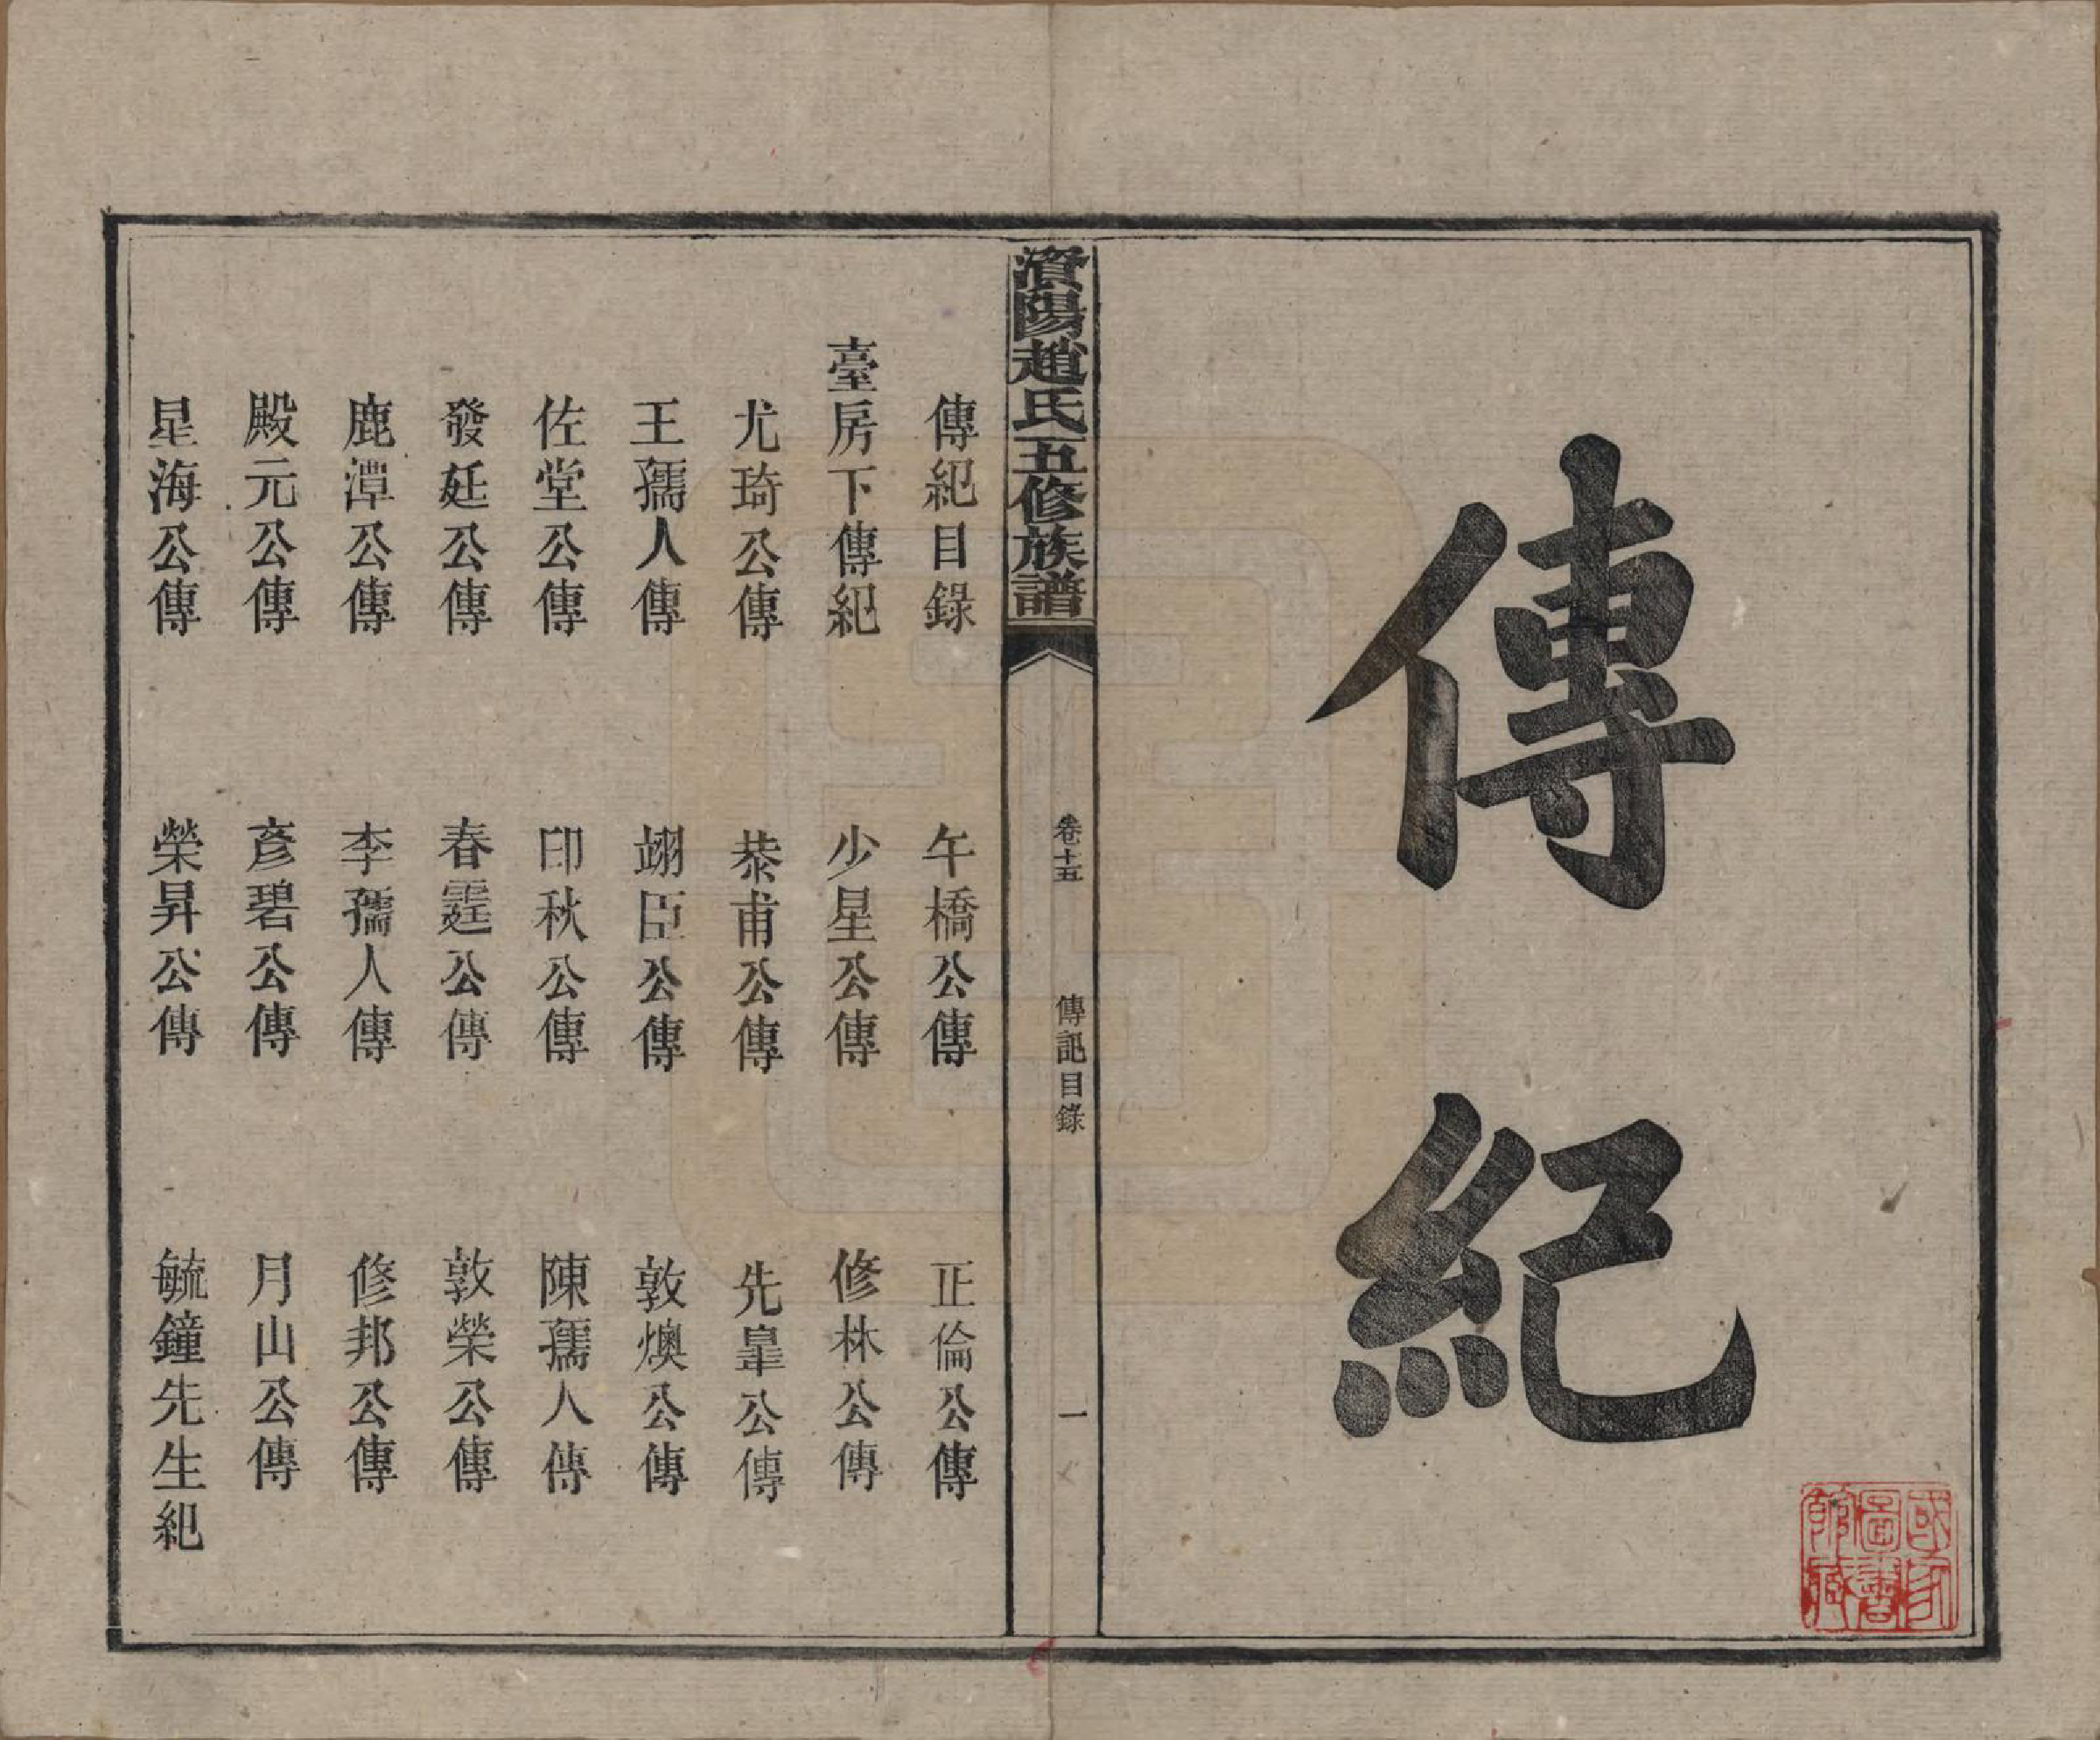 傳紀
國家圖書館藏
濱陽趙氏五修族譜
卷十五
傳記目錄
一
傳紀目錄
午橋公傳
正倫公傳
臺房下傳紀
少星公傳
修林公傳
尤琦公傳
恭甫公傳
先皐公傳
王孺人傳
翊臣公傳
敦燠公傳
佐堂公傳
印秋公傳
陳孺人傳
發廷公傳
春霆公傳
敦榮公傳
鹿潭公傳
李孺人傳
修邦公傳
殿元公傳
彥碧公傳
月山公傳
星海公傳
榮昇公傳
毓鐘先生紀